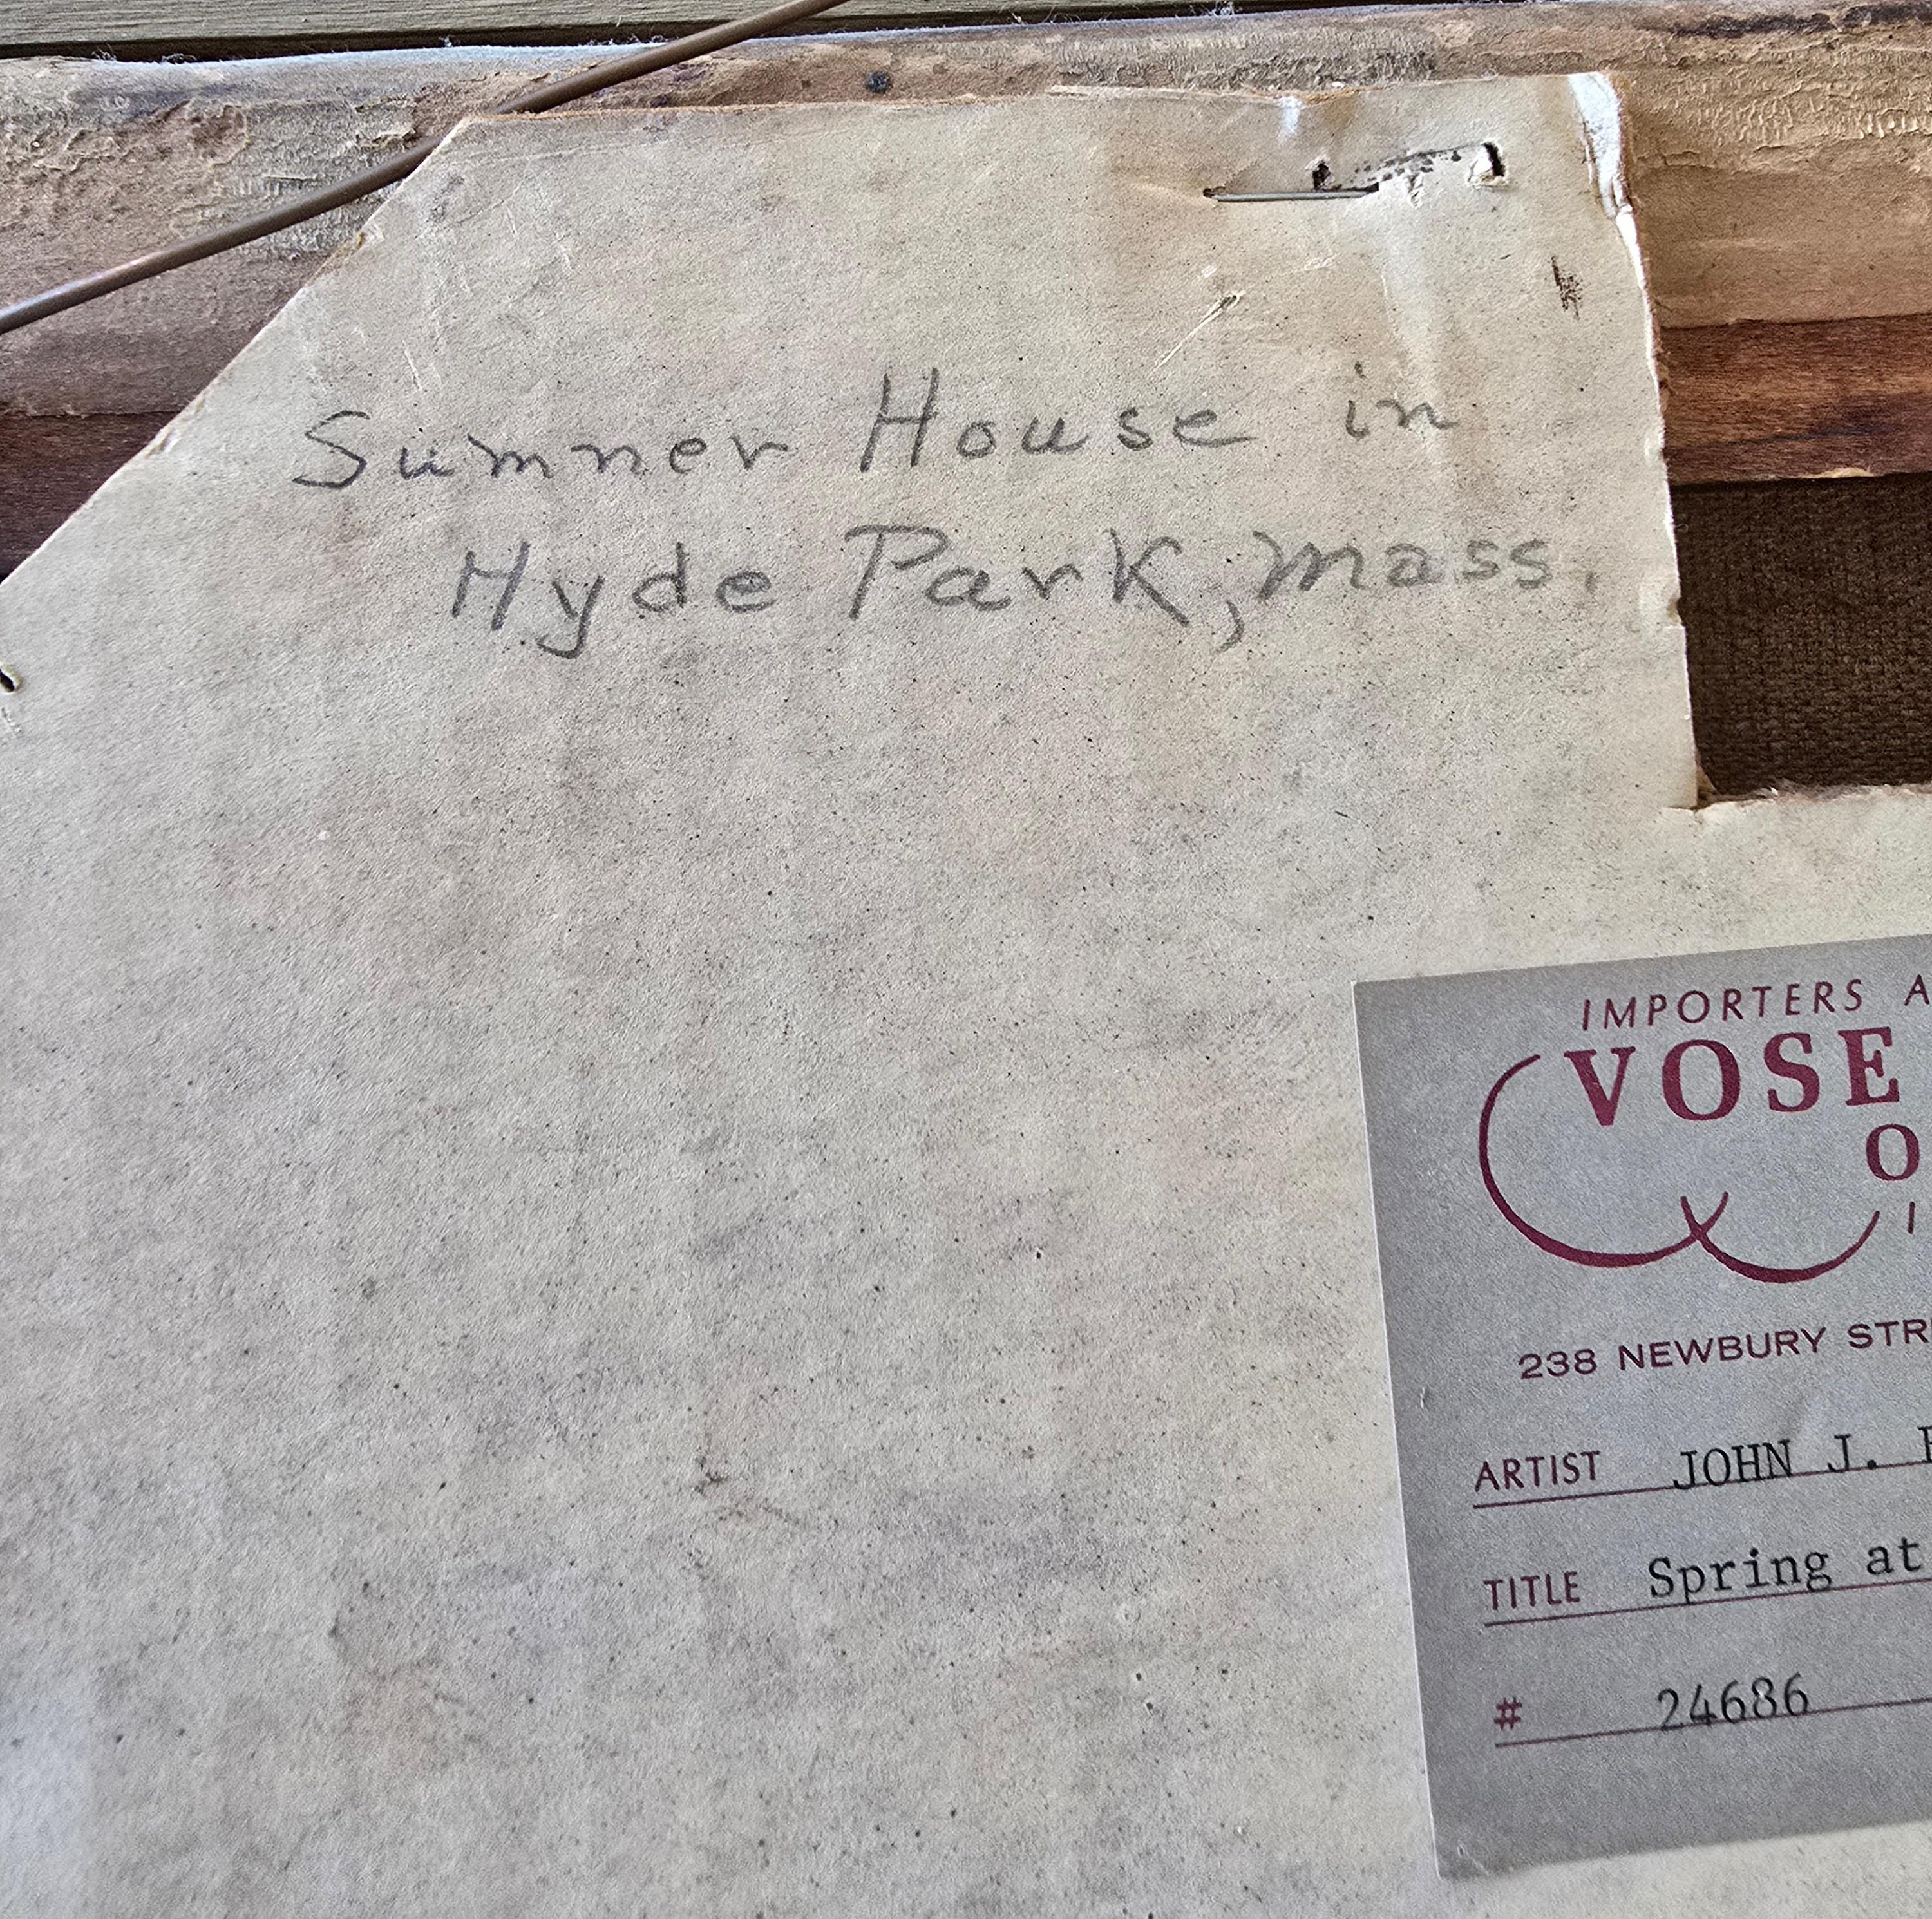 Summer House in
Hyde Park, Mass.
IMPORTERS
VOSE
238 NEWBURY
ARTIST JOHN J.
TITLE Spring at
# 24686